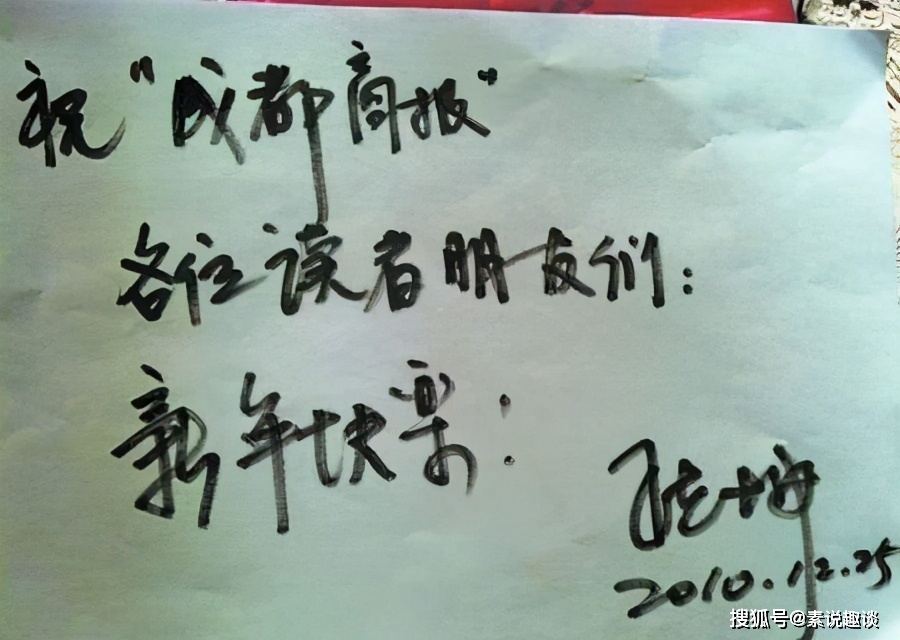 祝“成都商报”
各位读者朋友们：
新年快樂！
陈坤
2010.12.25
搜狐号@素说趣谈